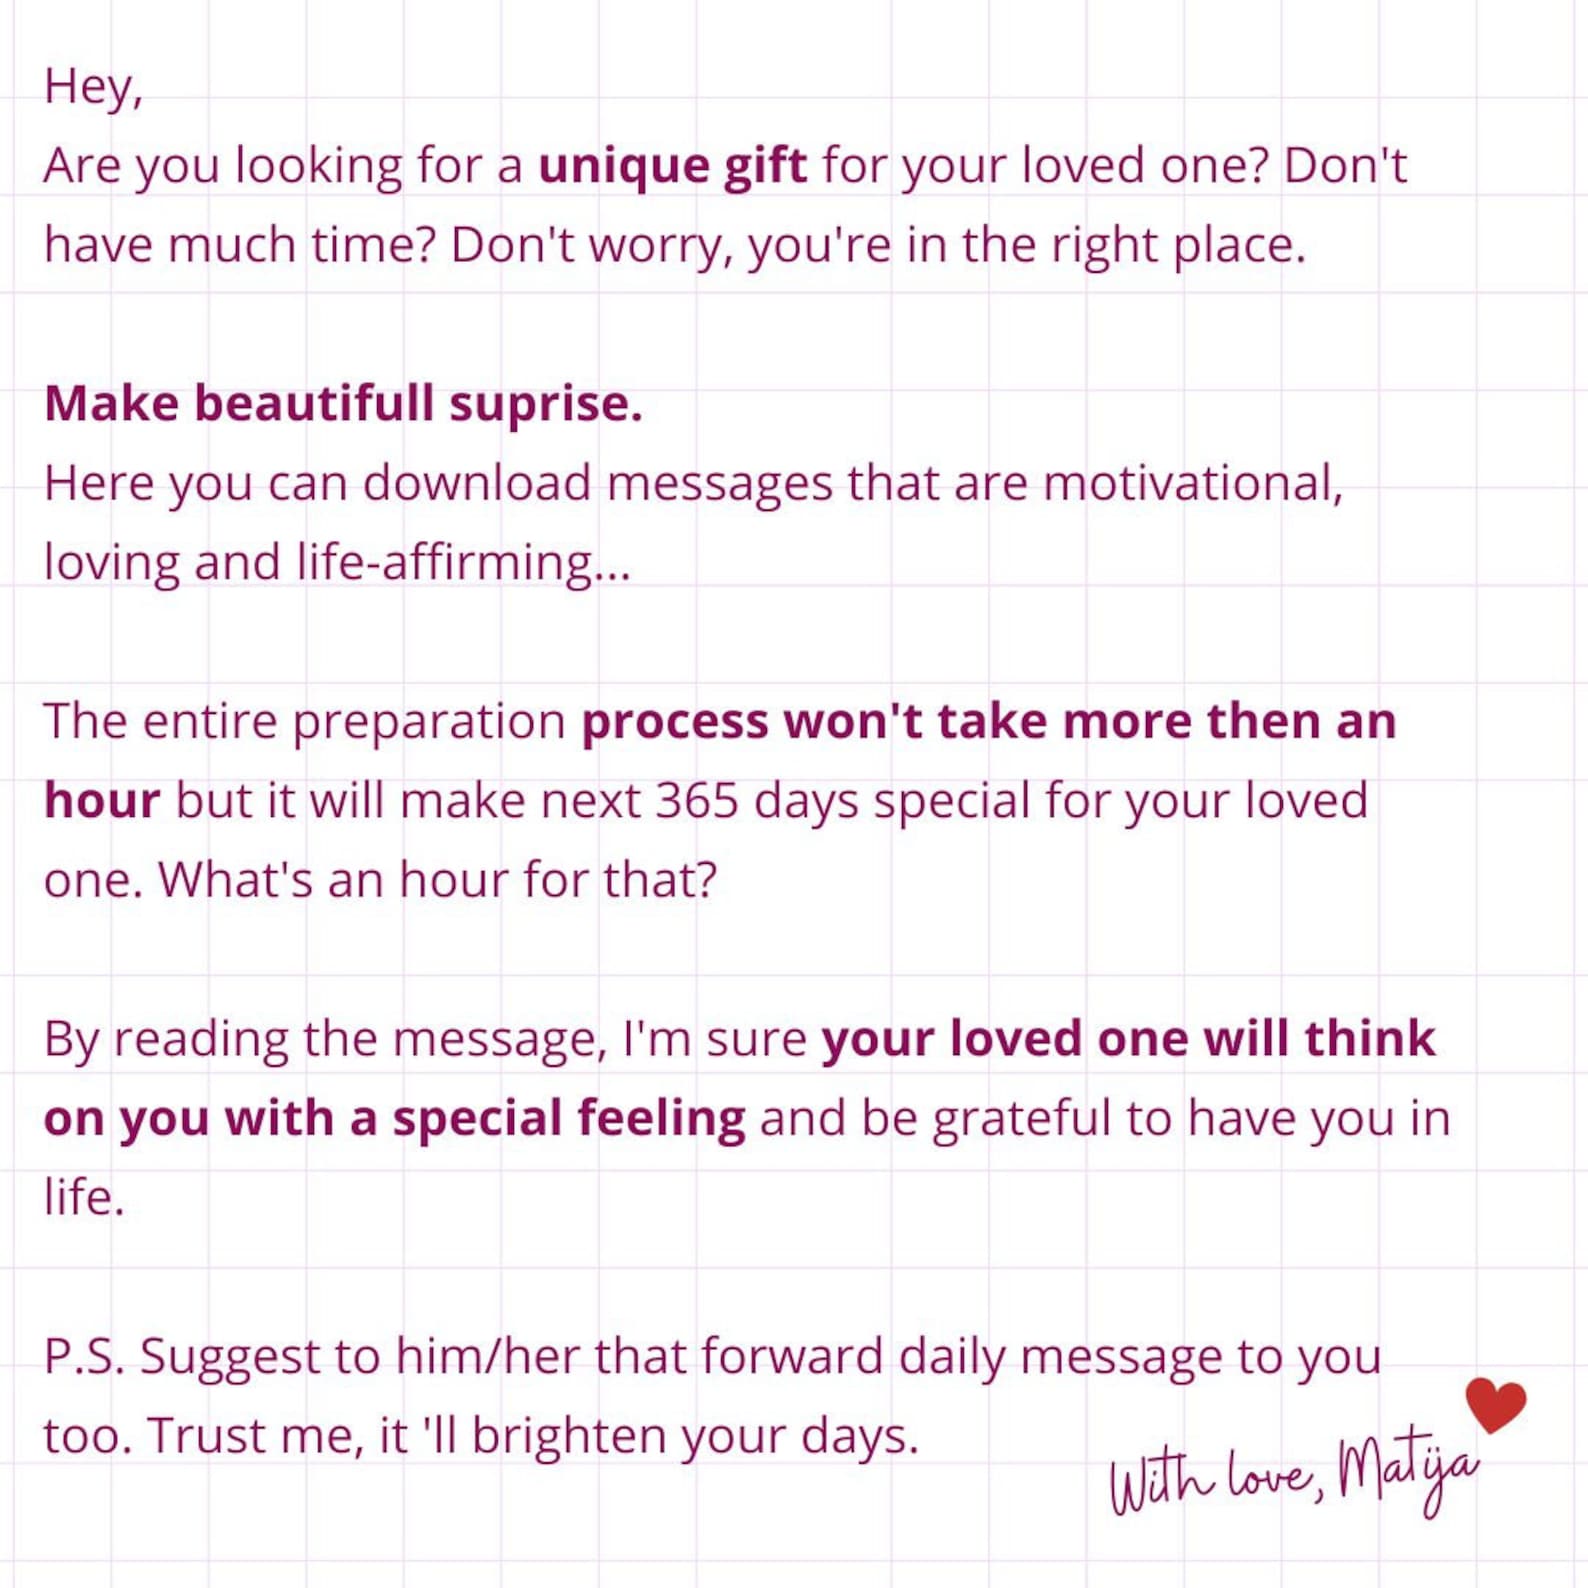 Hey,
Are you looking for a unique gift for your loved one? Don't
have much time? Don't worry, you're in the right place.
Make beautifull suprise.
Here you can download messages that are motivational,
loving and life-affirming...
The entire preparation process won't take more then an
hour but it will make next 365 days special for your loved
one. What's an hour for that?
By reading the message, I'm sure your loved one will think
on you with a special feeling and be grateful to have you in
life.
P.S. Suggest to him/her that forward daily message to you
too. Trust me, it 'll brighten your days.
With love, Matija